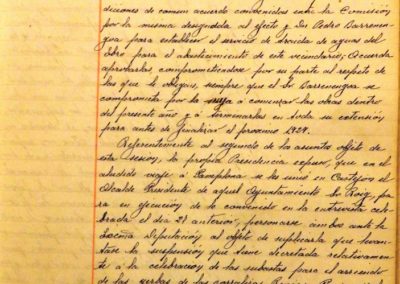 diciones de comun acuerdo convenidas entre la Comisión
por la misma designada al efecto y Don Pedro Barrenengoa
para establecer el servicio de traida de aguas del
Ebro para el abastecimiento de este vecindario; Acuerda
aprobarlas, comprometiendose por su parte al respeto de
las que le obliguen, siempre que el Sr Barrenengoa se
comprometa por la suya a comenzar las obras dentro
del presente año y á terminarlas en toda su extensión
para antes de finalizar el proximo 1924.
Referentemente al segundo de los asuntos objeto de
esta sesion, la propia Presidencia expuso, que en el
aludido viaje á Pamplona se les unió en Castejon el
Alcalde Presidente de aquel Ayuntamiento Sr Roig, pa
ra en ejecución de lo convenido en la entrevista cele
brada el dia 27 anterior, personarse ambos ante la
Excma Diputación al objeto de suplicarla que levan
tase la suspensión que tiene decretada relativamen
te á la celebración de las subastas para el arriendo
de las yerbas de las corralizas